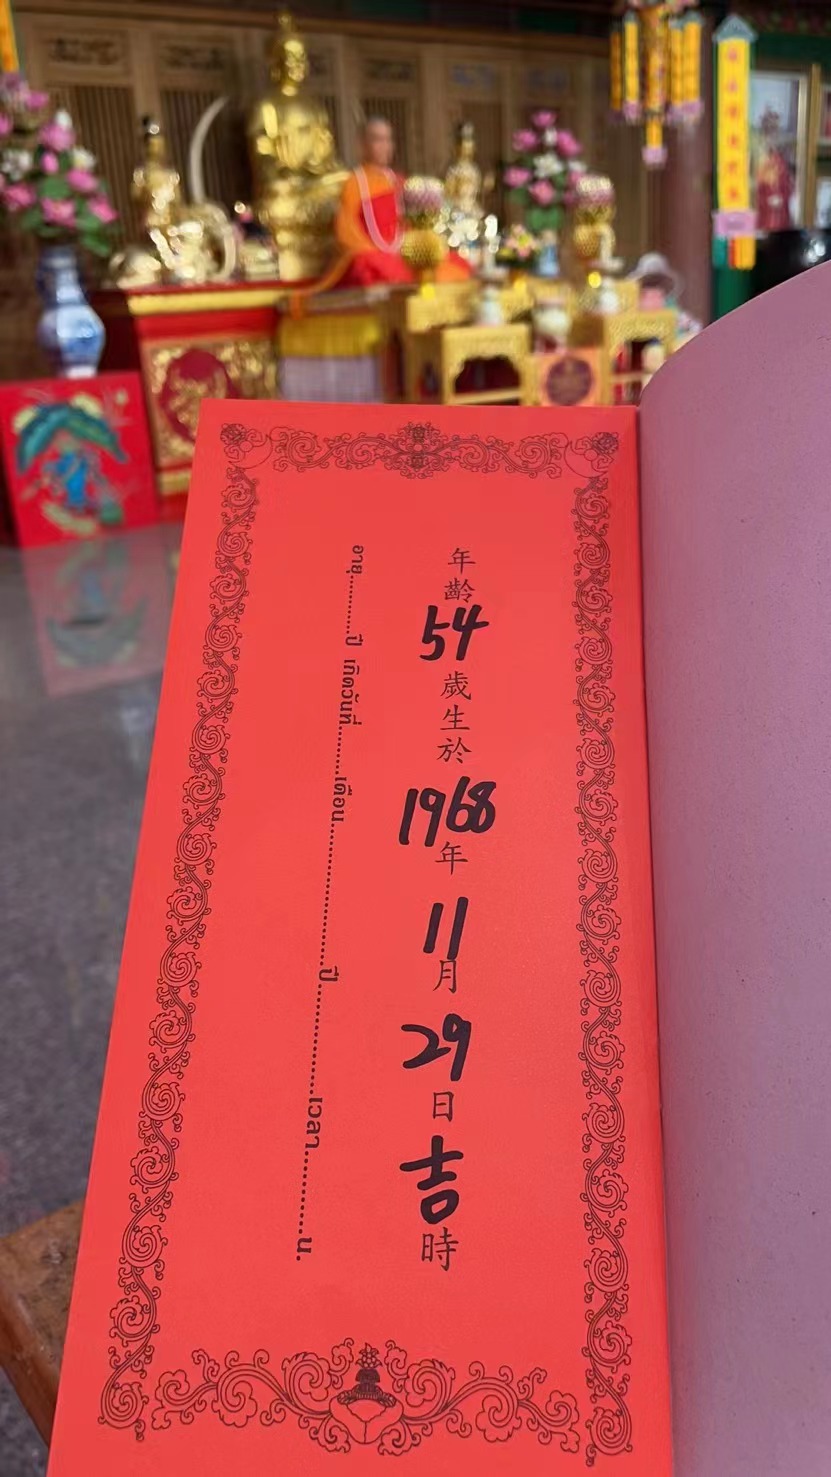 年齡54歲生於1968年11月29日吉時
อายุ............ปี เกิดวันที่............เดือน..............................ปี......................เวลา..................น.